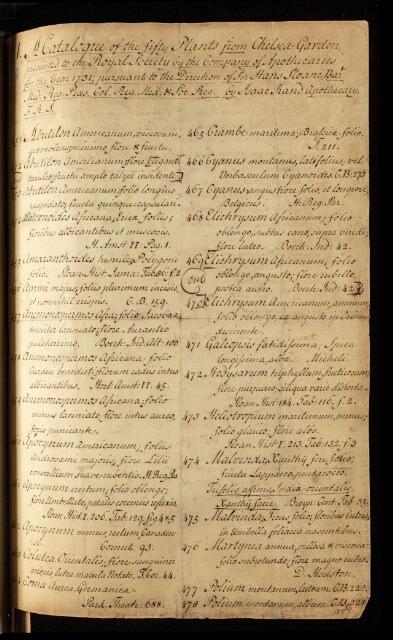 1. A Catalogue of the fifty Plants from Chelsea-Garden,
presented to the Royal Society by the Company of Apothecaries
for the Year 1731; pursuant to the Direction of Sr. Hans Sloane Bart
Med. Reg. Præs. Col. Reg. Med. & Soc. Reg. by Isaac Rand Apothecary.
F.R.S.
Abutilon Americanum, viscosum,
flore & fructu.
Abutilon Americanum flore
fructu amplo calyci insidente
Abutilon Americanum folio longius
fructu quinque-capsulari.
Malvinoides Africana, foliis;
floribus albicantibus et
H. Amst. II. Pag. 1.
Amaranthoides humile, Polygoni
folio. Sloan Hist. Jama: Tab. 86. f. 2
Ammi majus, foliis plurimum incisis,
C. B. 159.
Anemonospermos Afra; folio Jacobææ
laciniato, flore Aurantio
pulcherrimo. Boerh. Ind. Alt. 100
Anemonospermos Africana, folio
Cardui benedicti, florum radiis intus
albicantibus. Hort. Amst. II. 45.
Anemonospermos Africana, folio
minus laciniato, flore intus aureo,
foris puniceante.
Apocynum Americanum, foliis
Androsæmi majoris, flore Lilii
convallium suave rubentis. H. Reg. Pa
Apocynum erectum, folio oblongo,
flore Umbellato, petalis coccineis reflexis.
Sloan. Hist. I. 206. Tab. 129. fig. 4 & 5
Apocynum minus, rectum, Canaden
Cornut. 93.
Colutea Orientalis, flore sanguinei
coloris, luteâ maculâ Notato. T. Cor. 44.
Coma Aurea, Germanica.
Park. Theatr. 688.
465 Crambe maritima; Brassicæ folio.
T. 211.
466 Cyanus montanus, latifolius, vel
Verbasculum Cyanoides. C.B. 273
467 Cyanus angustiore folio, et longiore,
Belgicus. H. Reg. Par.
468 Elichrysum Africanum; folio
oblongo, subtus cano, supra viridi;
flore luteo. Boerh: Ind: 42.
469 Elichrysum Africanum, folio
oblongo, angusto; flore rubello,
postea aureo. Boerh: Ind: 42
out
470 Elichrysum Americanum, annuum,
folio oblongo, ex angusto in
desinente.
471 Galeopsis fœtidissima, Spica
longissima, alba. Micheli
472 Hedysarum triphyllum, fruticosum,
flore purpureo, siliqua varie distorta.
Sloan. Hist. 184. Tab. 116. f. 2.
473 Heliotropium maritimum, minus,
folio glauco, flore albo.
Sloan. Hist. I. 213. Tab. 132. f. 3
474 Malvinda, Xanthij folio,
fructu Lappaceo, pentacocco.
Trifolio affinis, Indiæ orientalis,
Xanthij facie. Breyn. Cent. Tab. 35
475 Malvinda, folio; floribus luteis,
in Umbella foliacea nascentibus.
476 Martynia annua, villosa & viscosa,
folio subrotundo, flore magno rubro.
D. Houston.
477 Polium montanum, luteum. C.B. 220.
478 Polium montanum, album. C.B. 221